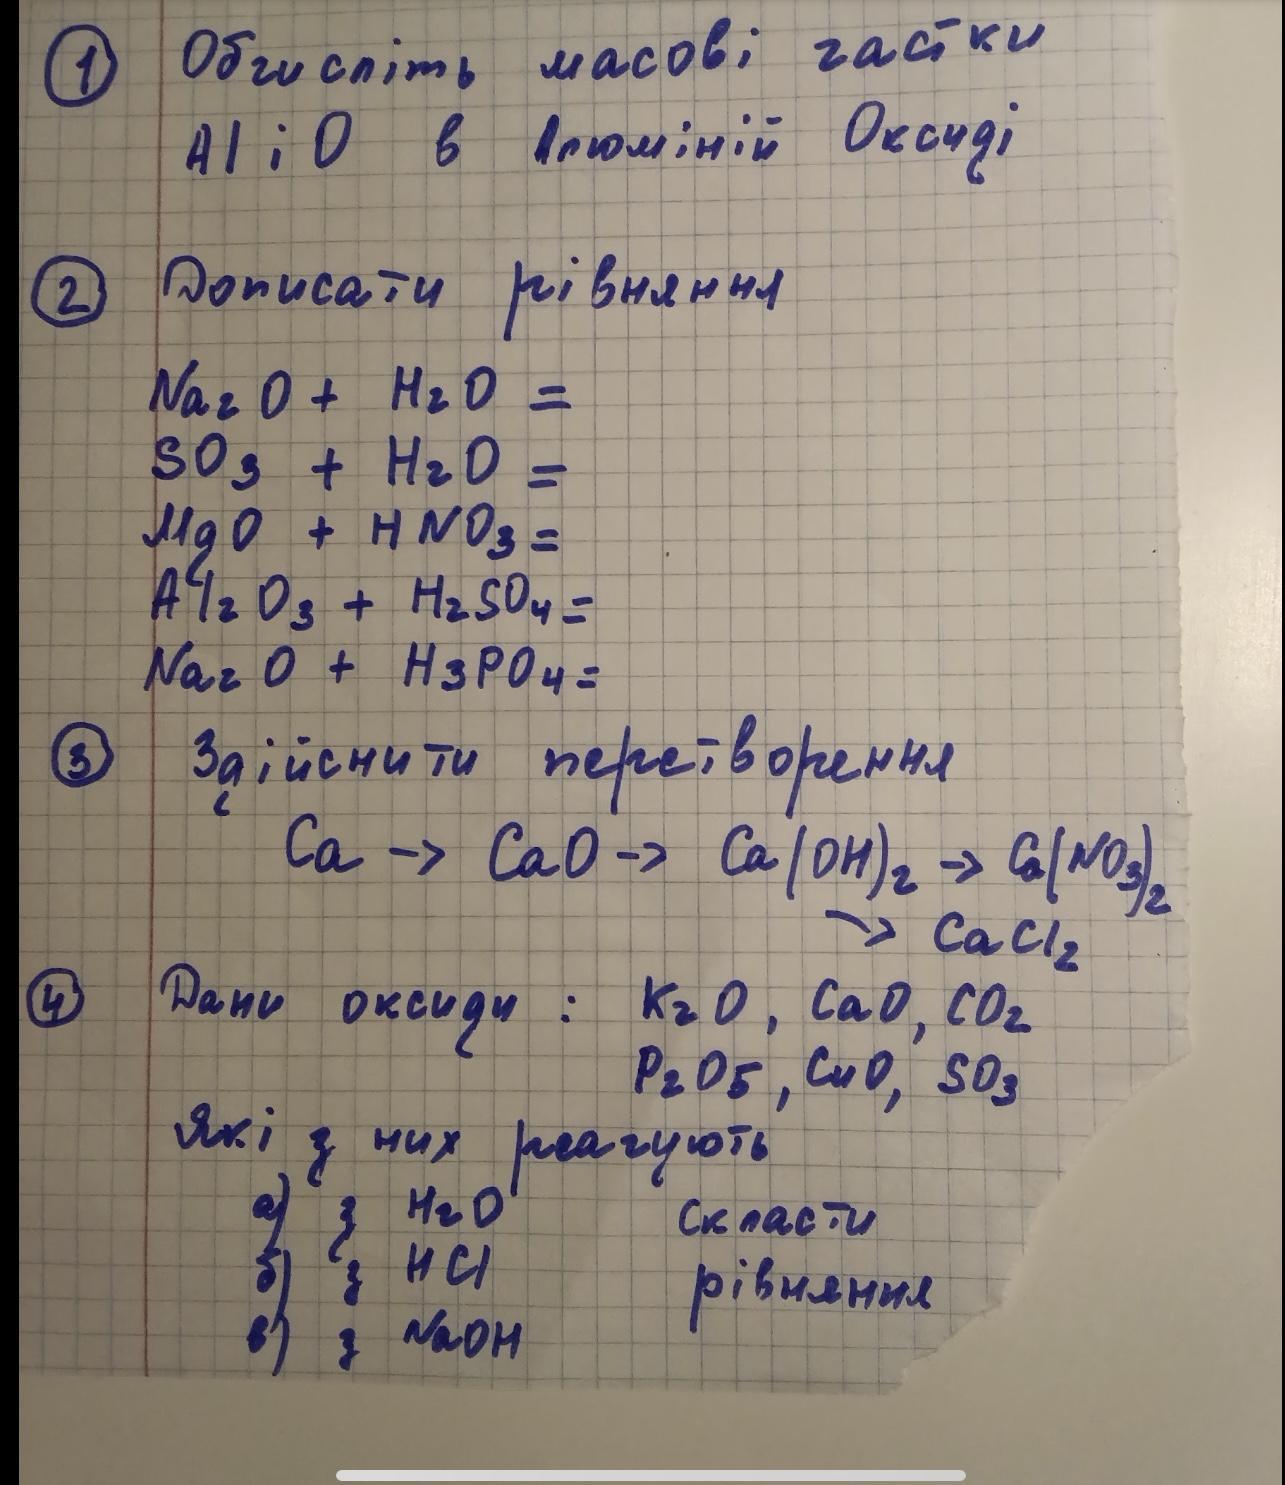 1 Обчисліть масові частки
Al і O в Алюміній Оксиді
2 Дописати рівняння
Na2O + H2O =
SO3 + H2O =
MgO + HNO3 =
Al2O3 + H2SO4 =
Na2O + H3PO4 =
3 Здійснити перетворення
Ca -> CaO -> Ca(OH)2 -> Ca(NO3)2
-> CaCl2
4 Дани оксиди : K2O, CaO, CO2
P2O5, CuO, SO3
Які з них реагують
а) з H2O Скласти
б) з HCl рівняння
в) з NaOH